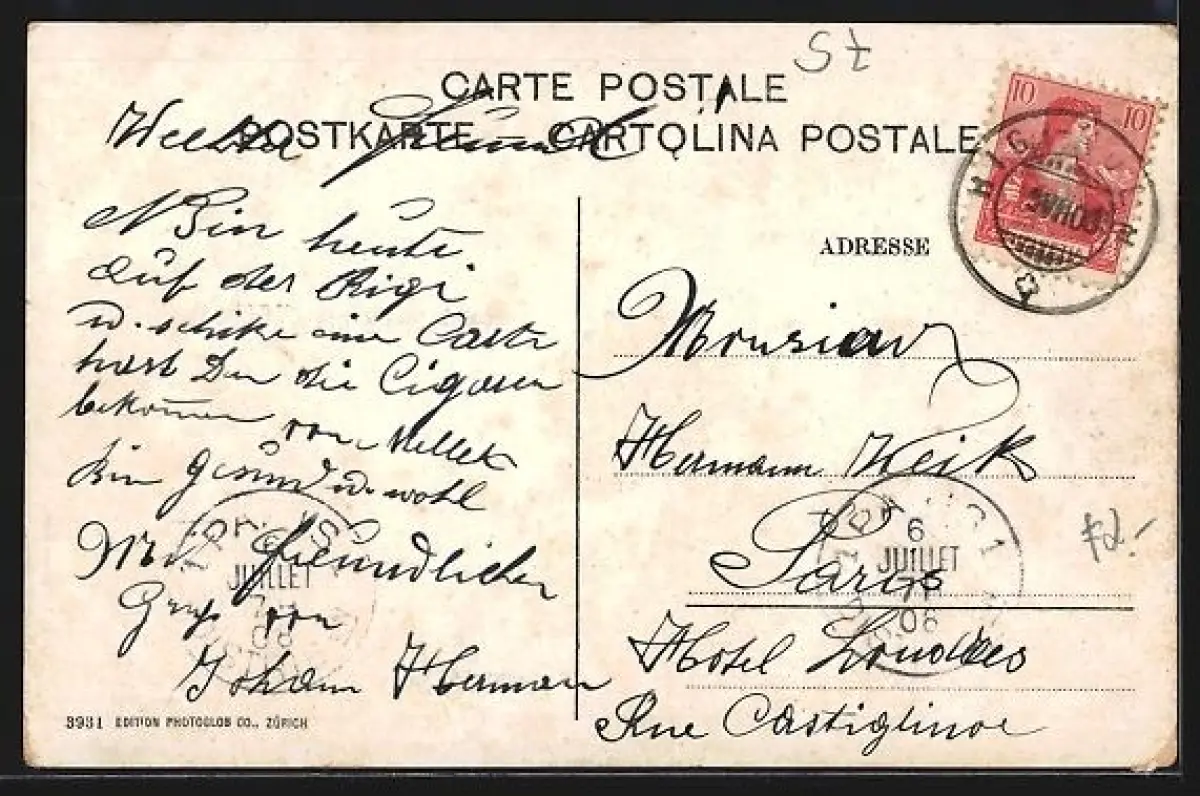 St
CARTE POSTALE
POSTKARTE — CARTOLINA POSTALE
10 10
ADRESSE
Bin heute
auf der Rigi
u. schike eine Carte
hast Du die Cigaren
bekomen von
bin gesund u. wohl
Mit freundlichen
Gruss von
Johann Herman
Monsieur
Hermann Weik
Paris
Hotel Londres
Rue Castiglinoe
6
JUILLET
06
JUILLET
06
3931 EDITION PHOTOGLOB CO., ZÜRICH